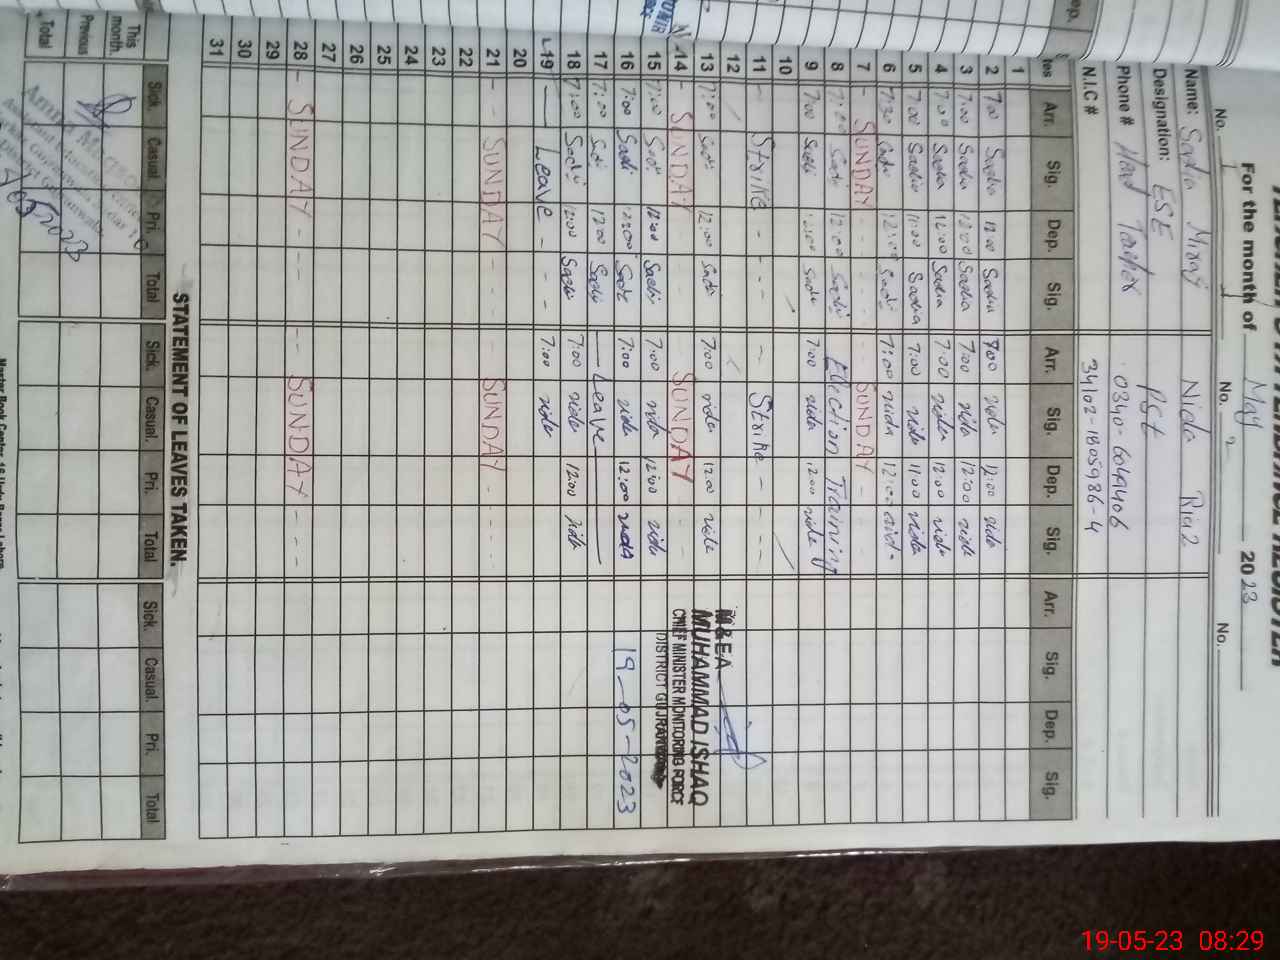 TEACHER'S ATTENDANCE REGISTER
For the month of May 2023
No. 1 No. 2 No.
Name: Sadia Miraj Nida Riaz
Designation: ESE PST
Phone # Head Teacher 0340-6049406
N.I.C # 34102-1805986-4
tes Arr. Sig. Dep. Sig. Arr. Sig. Dep. Sig. Arr. Sig. Dep. Sig.
1
2 7:00 Sadia 12:00 Sadia 7:00 nida 12:00 nida
3 7:00 Sadia 12:00 Sadia 7:00 nida 12:00 nida
4 7:00 Sadia 12:00 Sadia 7:00 nida 12:00 nida
5 7:00 Sadia 11:00 Sadia 7:00 nida 11:00 nida
6 7:30 Sadi 12:00 Sadi 7:00 nida 12:00 nida
7 - SUNDAY - - - SUNDAY - - -
8 7:00 Sadi 12:00 Sadi Election Training
9 7:00 Sadi 12:00 Sadi 7:00 nida 12:00 nida
10
11 - Strike - - - - Strike - - -
12
13 7:00 Sadi 12:00 Sadi 7:00 nida 12:00 nida
14 - SUNDAY - - SUNDAY - -
15 7:00 Sadi 12:00 Sadi 7:00 nida 12:00 nida
16 7:00 Sadi 12:00 Sadi 7:00 nida 12:00 nida
17 7:00 Sadi 12:00 Sadi — Leave —
18 7:00 Sadi 12:00 Sadi 7:00 nida 12:00 nida
19 — Leave - - - 7:00 nida
20
21 - - SUNDAY - - - SUNDAY - - -
22
23
24
25
26
27
28 - SUNDAY - - - - - SUNDAY - - - -
29
30
31
M&EA
MUHAMMAD ISHAQ
CHIEF MINISTER MONITORING FORCE
DISTRICT GUJRANWALA
19-05-2023
STATEMENT OF LEAVES TAKEN.
Sick Casual Pri. Total Sick. Casual. Pri. Total Sick. Casual. Pri. Total
This month.
Previous
Total
19-05-23 08:29